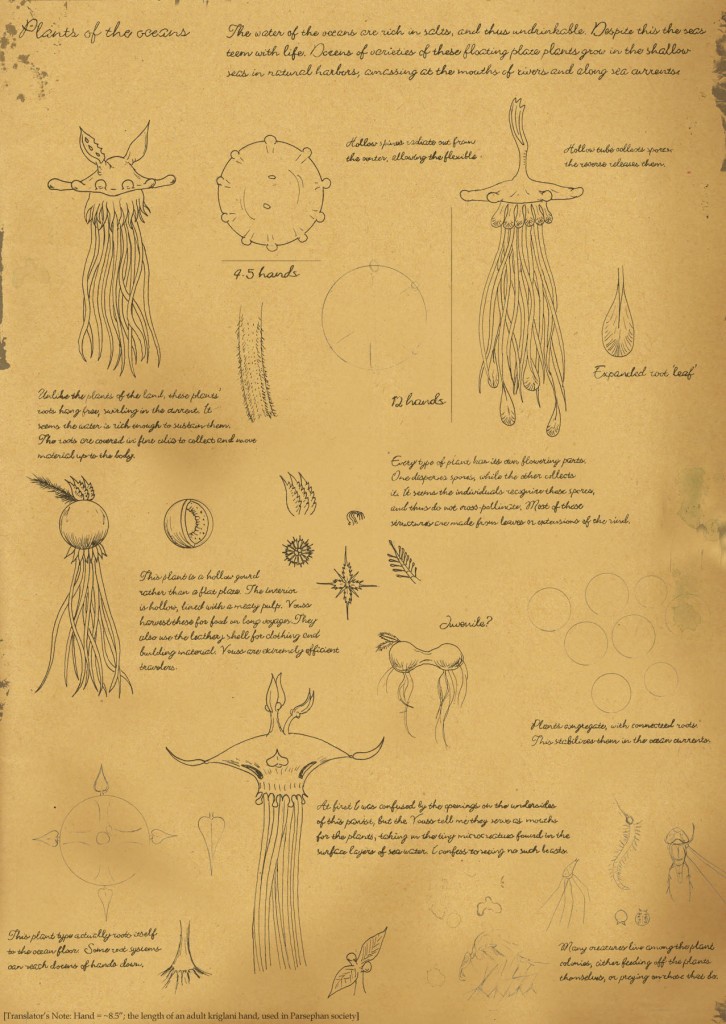 Plants of the oceans
The water of the oceans are rich in salts, and thus undrinkable. Despite this the seas
teem with life. Dozens of varieties of these floating plate plants grow in the shallow
seas in natural harbors, amassing at the mouths of rivers and along sea currents.
Hollow spines radiate out from
the center, allowing the flexible
Hollow tube collects spores,
the reverse releases them.
9.5 hands
12 hands
Expanded root 'leaf'
Unlike the plants of the land, these plants'
roots hang free, swirling in the current. It
seems the water is rich enough to sustain them.
The roots are covered w/ fine cilia to collect and move
material up to the body.
Every type of plant has its own flowering parts.
One disperses spores, while the other collects
it. It seems the individuals recognize these spores,
and thus do not cross-pollinate. Most of these
structures are made from leaves or extensions of the rind.
This plant is a hollow gourd
rather than a flat plate. The interior
is hollow, lined with a meaty pulp. Youss
harvest these for food on long voyages. They
also use the leathery shell for clothing and
building material. Youss are extremely efficient
travelers.
Juvenile?
Plants congregate, with connected roots.
This stabilizes them in the ocean currents.
At first I was confused by the openings on the undersides
of this variety, but the Youss tell me they serve as mouths
for the plants, taking in the tiny microcreatures found in the
surface layers of sea water. I confess to seeing no such beasts.
This plant type actually roots itself
to the ocean floor. Some root systems
can reach dozens of hands down.
Many creatures live among the plant
colonies, either feeding off the plants
themselves, or preying on those that do.
[Translator's Note: Hand = ~8.5"; the length of an adult kriglani hand, used in Parsephan society]